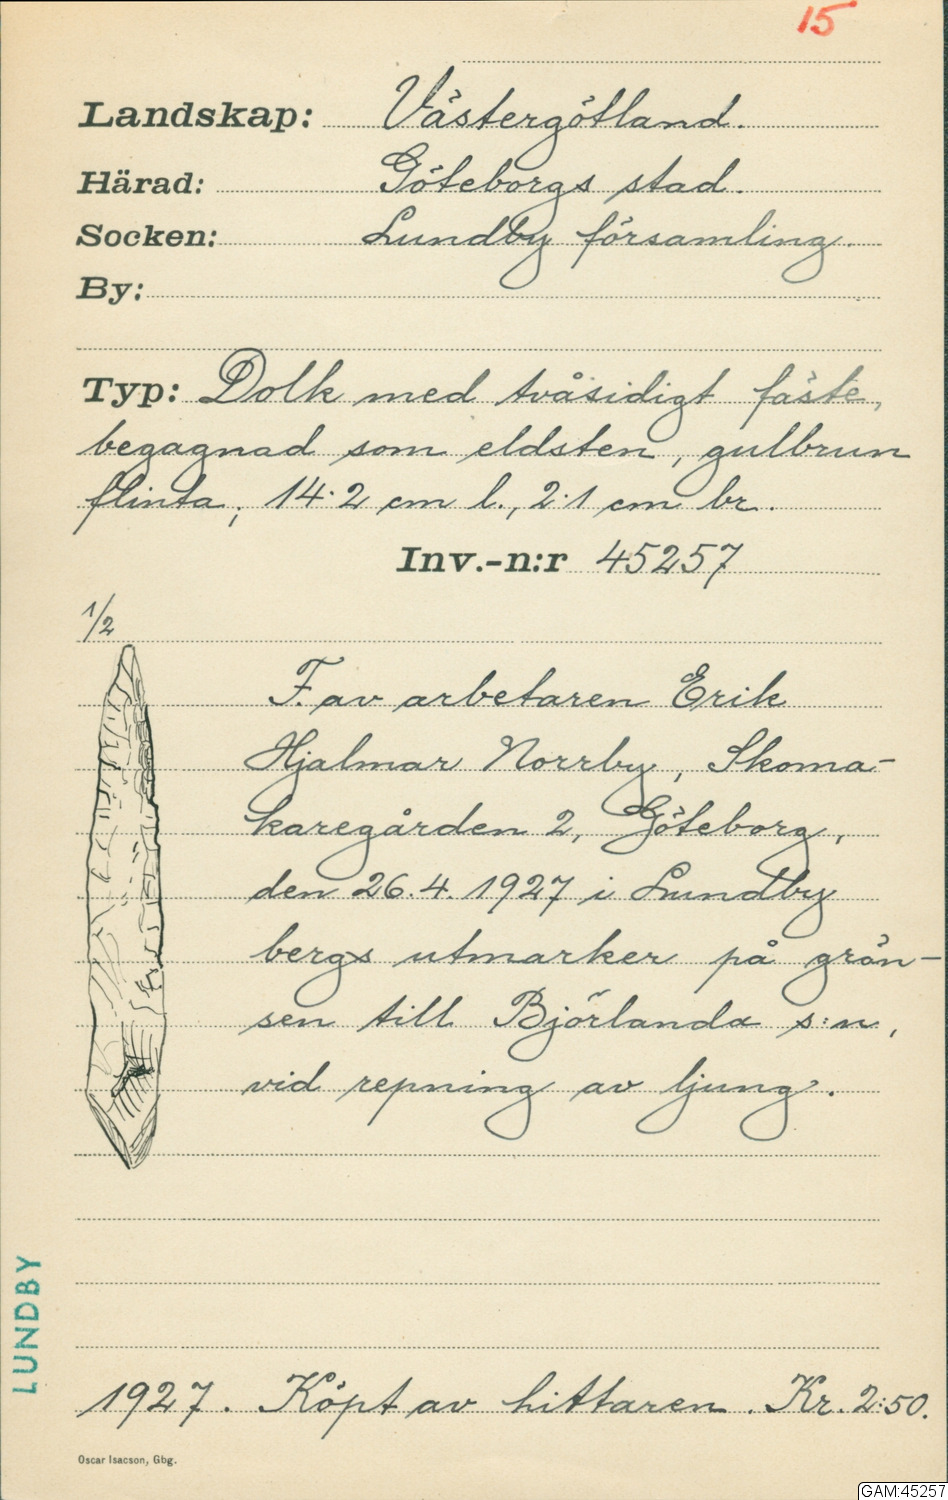 15
Landskap: Västergötland.
Härad: Göteborgs stad.
Socken: Lundby församling.
By:
Typ: Dolk med tvåsidigt fäste,
begagnad som eldsten, gulbrun
flinta, 14·2 cm l., 2·1 cm br.
Inv.-n:r 45257
1/2
F. av arbetaren Erik
Hjalmar Norrby, Skoma-
karegården 2, Göteborg,
den 26.4.1927 i Lundby
bergs utmarker på grän-
sen till Björlanda s:n,
vid repning av ljung.
LUNDBY
1927. Köpt av hittaren. Kr. 2:50.
Oscar Isacson, Gbg.
GAM:45257